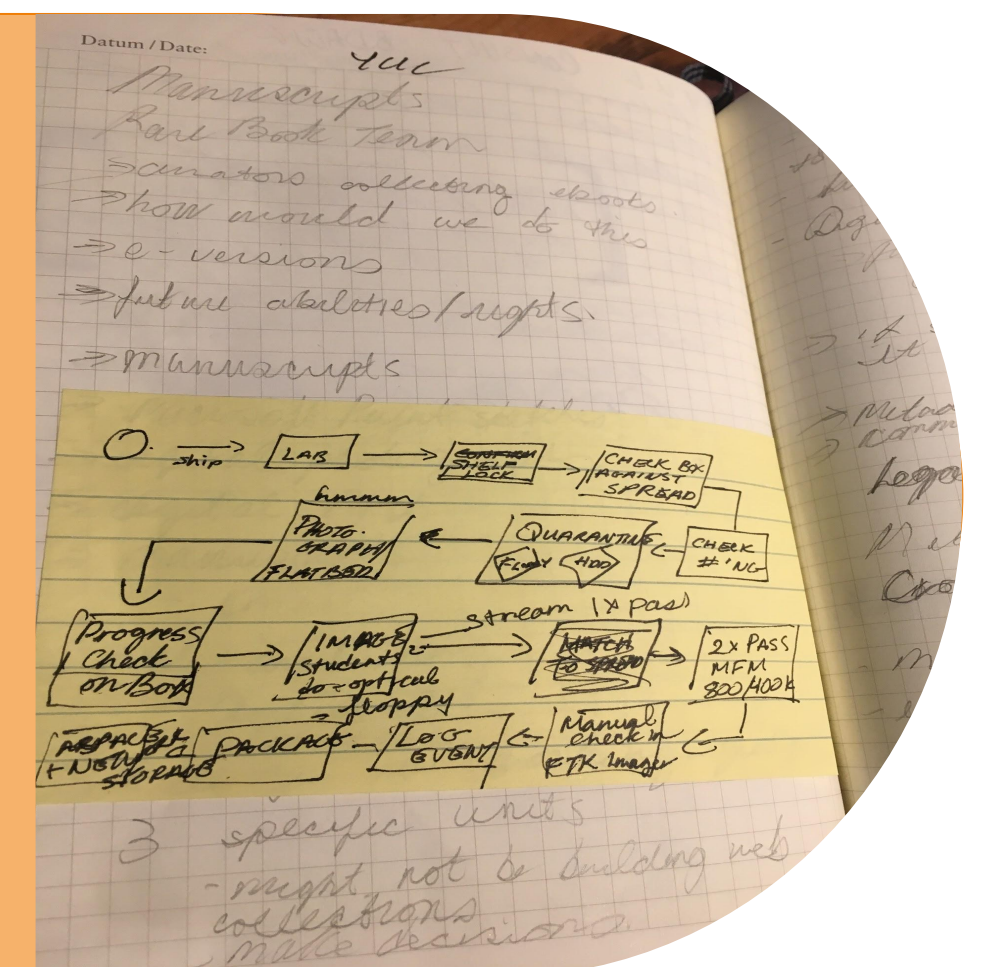 Datum / Date:
Manuscripts
Rare Book Team
⇒ curators collecting ebooks.
⇒ how would we do this
⇒ e-versions
⇒ future abilities/rights.
⇒ manuscripts
ship
LAB
SHELF
LOCK
CHECK BOX
AGAINST
SPREAD
CHECK
#'NG
QUARANTINE
FLOPPY
HDD
hmmmm
PHOTO-
GRAPH/
FLATBED
Progress
Check
on-Box
IMAGE
students
do-optical
floppy
stream 1x pass
MATCH
TO SPREAD
2x PASS
MFM
800/400K
Manual
check in
FTK Imager
LOG
EVENT
PACKAGE
+ NETWORK
STORAGE
3 specific units
- might not be building web
collections
- make decisions.